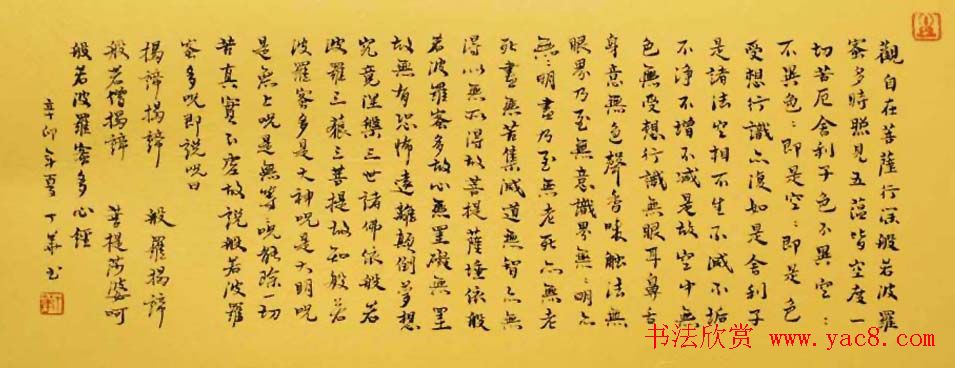 觀自在菩薩行深般若波羅
蜜多時照見五蘊皆空度一
切苦厄舍利子色不異空〻
不異色〻即是空〻即是色
受想行識亦復如是舍利子
是諸法空相不生不滅不垢
不淨不增不減是故空中無
色無受想行識無眼耳鼻舌
身意無色聲香味觸法無
眼界乃至無意識界無〻明亦
無〻明盡乃至無老死亦無老
死盡無苦集滅道無智亦無
得以無所得故菩提薩埵依般
若波羅蜜多故心無罣礙無罣
故無有恐怖遠離顛倒夢想
究竟涅槃三世諸佛依般若
波羅三藐三菩提故知般若
波羅蜜多是大神呪是大明呪
是無上呪是無等呪能除一切
苦真實不虛故說般若波羅
蜜多呪即說呪曰
揭諦揭諦 般羅揭諦
般若僧揭諦 菩提莎婆呵
般若波羅蜜多心經
辛卯年夏丁華書
书法欣赏 www.yac8.com